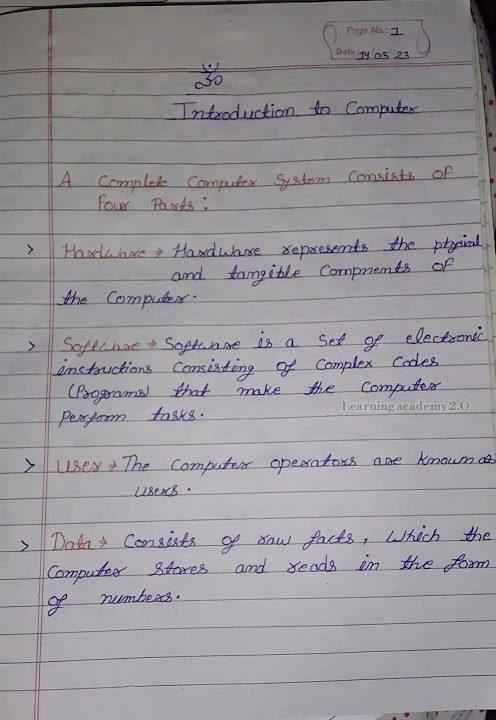 Page No.: 1
Date: 14 05 23
ॐ
Introduction to Computer
A Complete Computer System Consists of
four Parts:
> Hardware → Hardware represents the physical
and tangible Compnents of
the Computer.
> Software → Software is a Set of electronic
instructions Consisting of Complex Codes
(Programs) that make the Computer
Perform tasks.
Learning academy 2.0
> User → The Computer operators are known as
users.
> Data → Consists of raw facts, which the
Computer stores and reads in the form
of numbers.